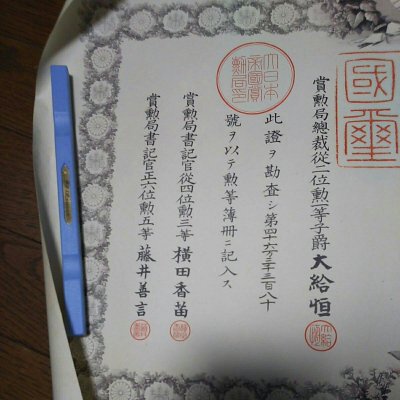 國璽
賞勲局總裁從二位勲一等子爵大給恒
大日本帝國賞勲局印
此證ヲ勘査シ第四十六万三千三百八十
號ヲ以テ勲等簿册ニ記入ス
賞勲局書記官從四位勲三等横田香苗
賞勲局書記官正六位勲五等藤井善言